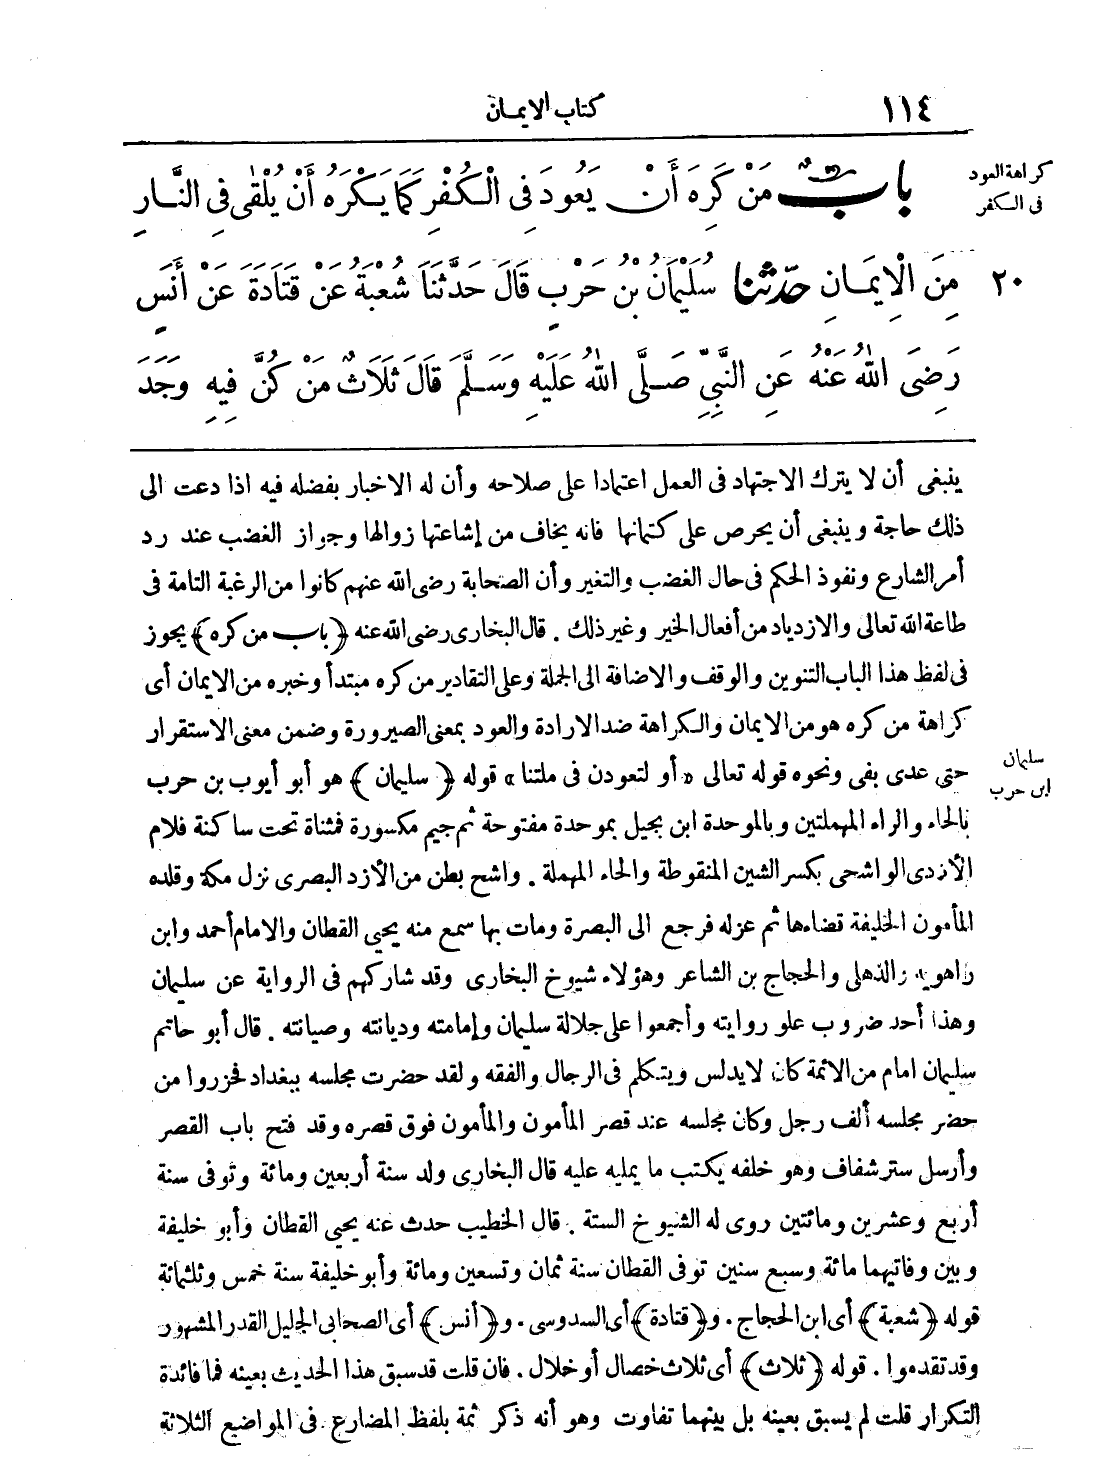 ١١٤
كتاب الايمان
كراهة العود
فى الكفر
بابٌ مَنْ كَرِهَ أَنْ يَعُودَ فِى الْكُفْرِ كَمَا يَكْرَهُ أَنْ يُلْقَى فِى النَّارِ
٢٠
مِنَ الْإِيمَانِ حَدّثنا سُلَيْمَانُ بْنُ حَرْبٍ قَالَ حَدَّثَنَا شُعْبَةُ عَنْ قَتَادَةَ عَنْ أَنَسٍ
رَضِىَ اللهُ عَنْهُ عَنِ النَّبِىِّ صَلَّى اللهُ عَلَيْهِ وَسَلَّمَ قَالَ ثَلَاثٌ مَنْ كُنَّ فِيهِ وَجَدَ
ينبغى أن لا يترك الاجتهاد فى العمل اعتمادا على صلاحه وأن له الاخبار بفضله فيه اذا دعت الى
ذلك حاجة وينبغى أن يحرص على كتمانها فانه يخاف من إشاعتها زوالها وجواز الغضب عند رد
أمر الشارع ونفوذ الحكم فى حال الغضب والتغير وأن الصحابة رضى الله عنهم كانوا من الرغبة التامة فى
طاعة الله تعالى والازدياد من أفعال الخير وغير ذلك . قال البخارى رضى الله عنه ﴿باب من كره﴾ يجوز
فى لفظ هذا الباب التنوين والوقف والاضافة الى الجملة وعلى التقادير من كره مبتدأ وخبره من الايمان أى
كراهة من كره هو من الايمان والكراهة ضد الارادة والعود بمعنى الصيرورة وضمن معنى الاستقرار
سليمان
ابن حرب
حتى عدى بفى ونحوه قوله تعالى «أو لتعودن فى ملتنا» قوله ﴿سليمان﴾ هو أبو أيوب بن حرب
بالحاء والراء المهملتين وبالموحدة ابن بجيل بموحدة مفتوحة ثم جيم مكسورة فمثناة تحت ساكنة فلام
الأزدى الواشحى بكسر الشين المنقوطة والحاء المهملة . واشح بطن من الأزد البصرى نزل مكة وقلده
المأمون الخليفة قضاءها ثم عزله فرجع الى البصرة ومات بها سمع منه يحيى القطان والامام أحمد وابن
راهويه والذهلى والحجاج بن الشاعر وهؤلاء شيوخ البخارى وقد شاركهم فى الرواية عن سليمان
وهذا أحد ضروب علو روايته وأجمعوا على جلالة سليمان وإمامته وديانته وصيانته . قال أبو حاتم
سليمان امام من الائمة كان لا يدلس ويتكلم فى الرجال والفقه ولقد حضرت مجلسه ببغداد فحزروا من
حضر مجلسه ألف رجل وكان مجلسه عند قصر المأمون والمأمون فوق قصره وقد فتح باب القصر
وأرسل ستر شفاف وهو خلفه يكتب ما يمليه عليه قال البخارى ولد سنة أربعين ومائة وتوفى سنة
أربع وعشرين ومائتين روى له الشيوخ الستة . قال الخطيب حدث عنه يحيى القطان وأبو خليفة
وبين وفاتيهما مائة وسبع سنين توفى القطان سنة ثمان وتسعين ومائة وأبو خليفة سنة خمس وثلثمائة
قوله ﴿شعبة﴾ أى ابن الحجاج . و﴿قتادة﴾ أى السدوسى . و﴿أنس﴾ أى الصحابى الجليل القدر المشهور
وقد تقدموا . قوله ﴿ثلاث﴾ أى ثلاث خصال أو خلال . فان قلت قد سبق هذا الحديث بعينه فما فائدة
التكرار قلت لم يسبق بعينه بل بينهما تفاوت وهو أنه ذكر ثمة بلفظ المضارع فى المواضع الثلاثة